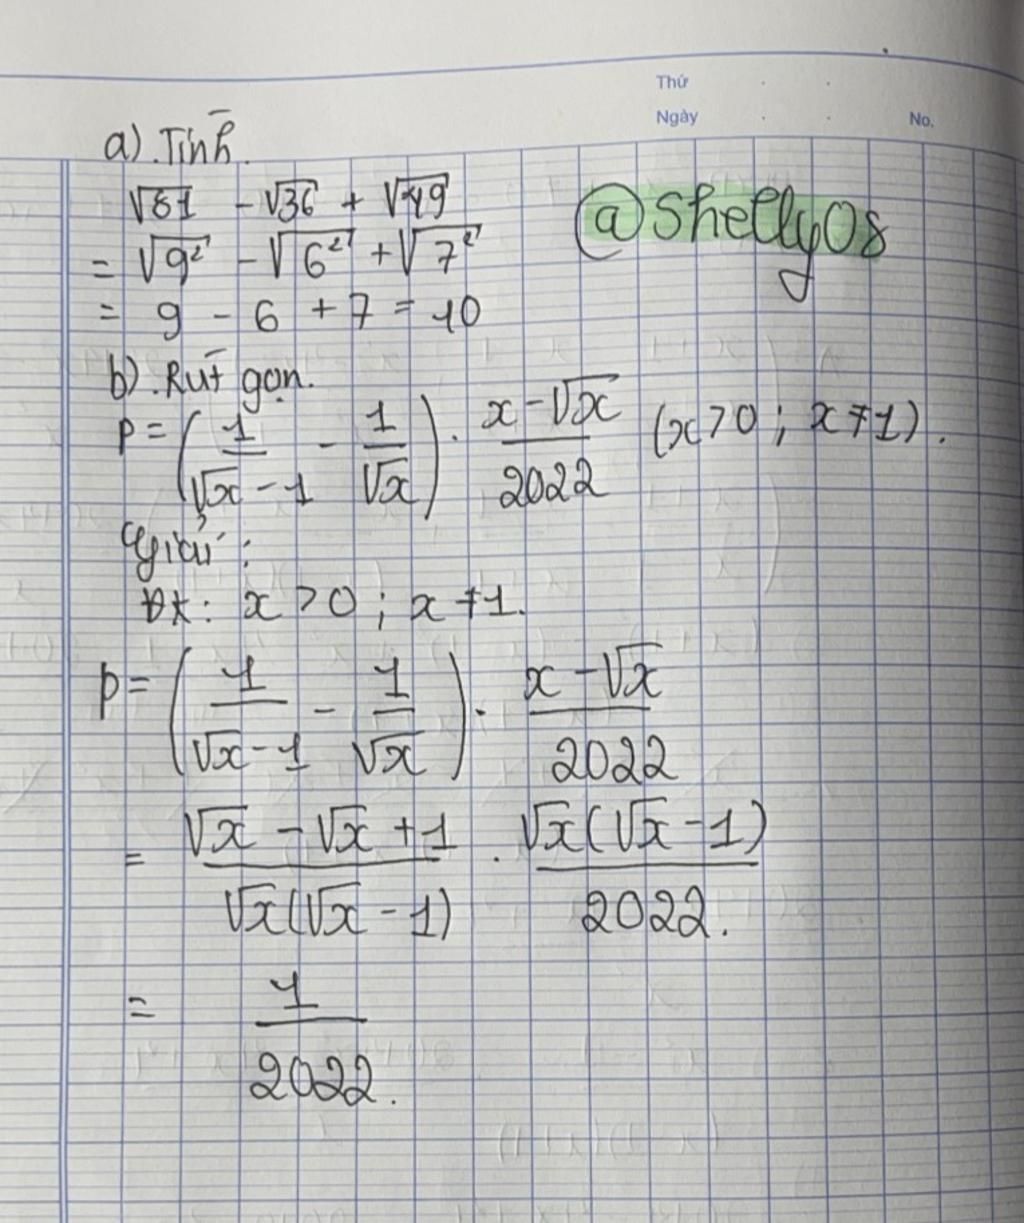 Thứ
Ngày
No.
a). Tính.
√81 - √36 + √49
@shelly08
= √9² - √6² + √7²
= 9 - 6 + 7 = 10
b). Rút gọn.
P = (1/(√x - 1) - 1/√x) . (x - √x)/2022 (x > 0 ; x ≠ 1).
Giải :
ĐK: x > 0 ; x ≠ 1.
P = (1/(√x - 1) - 1/√x) . (x - √x)/2022
= (√x - √x + 1)/(√x(√x - 1)) . (√x(√x - 1))/2022.
= 1/2022.